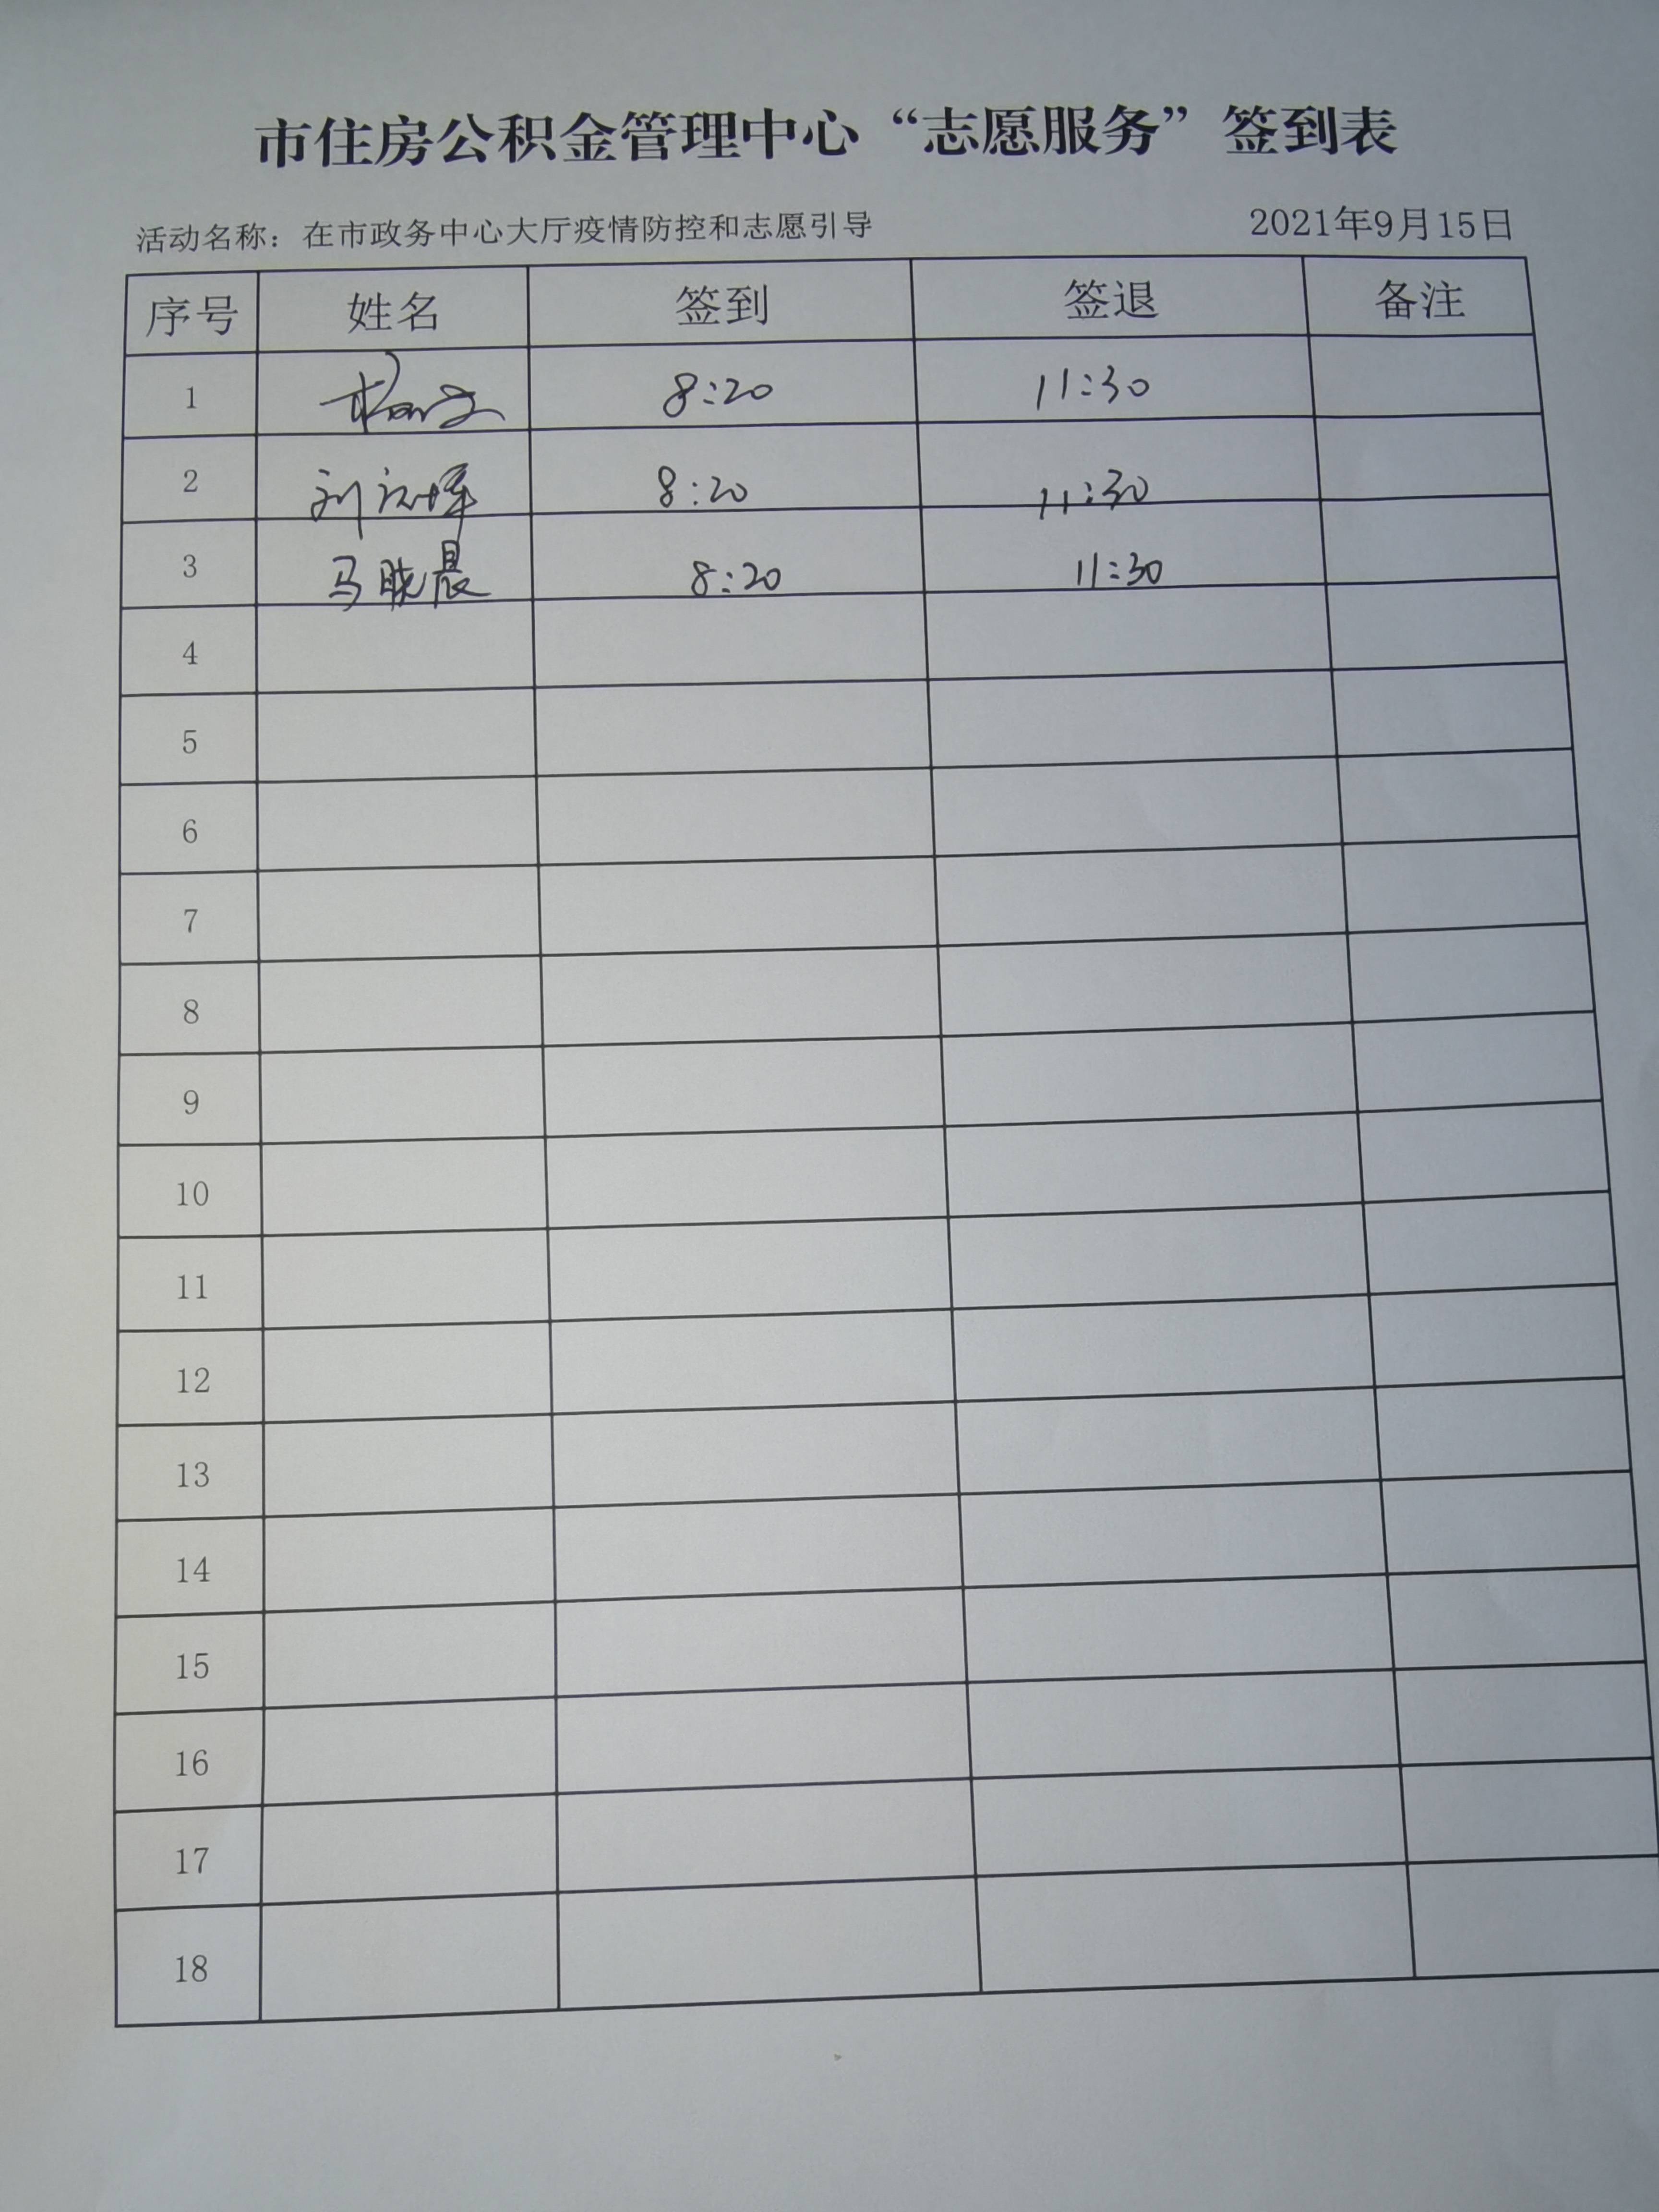 市住房公积金管理中心“志愿服务”签到表
活动名称：在市政务中心大厅疫情防控和志愿引导 2021年9月15日
序号 姓名 签到 签退 备注
1 8:20 11:30
2 刘 8:20 11:30
3 马晓晨 8:20 11:30
4
5
6
7
8
9
10
11
12
13
14
15
16
17
18